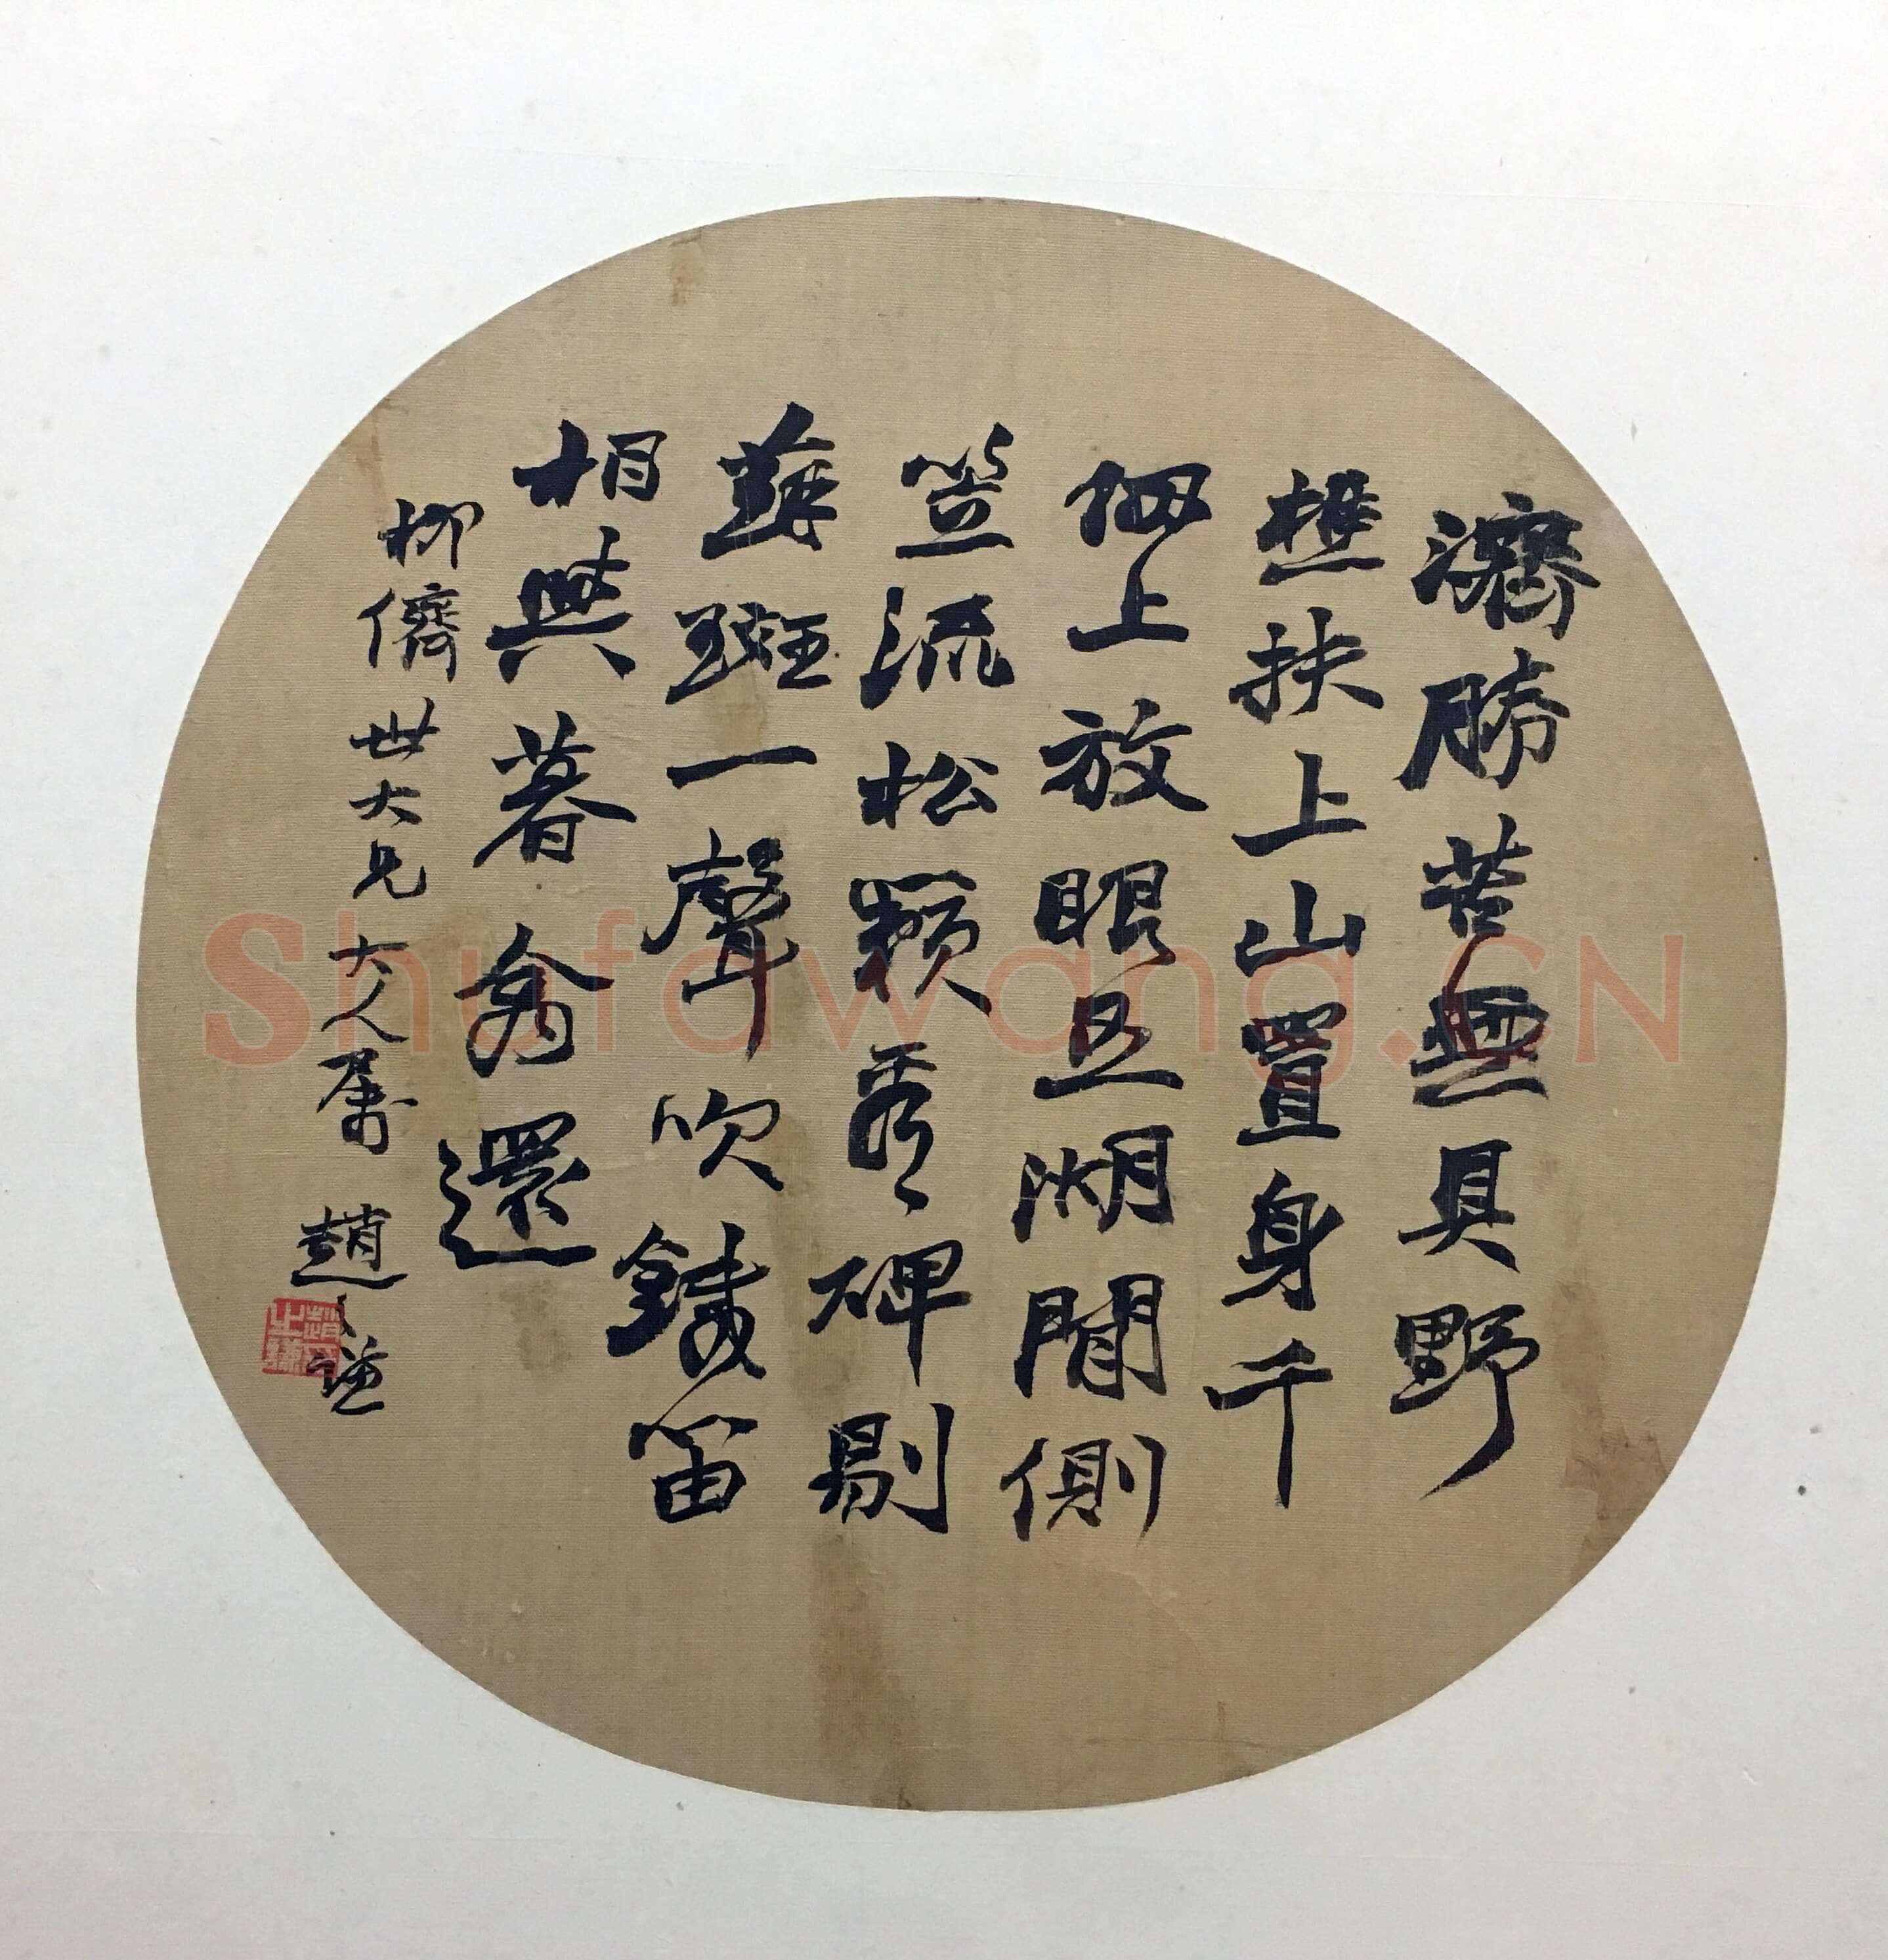 濟勝苦無具野
樵扶上山置身千
仞上放眼五湖間側
笠流松看碑剔
蘚斑一聲吹鐵笛
相與暮禽還
柳儕世大兄大人屬 趙之謙
Shufawang.CN